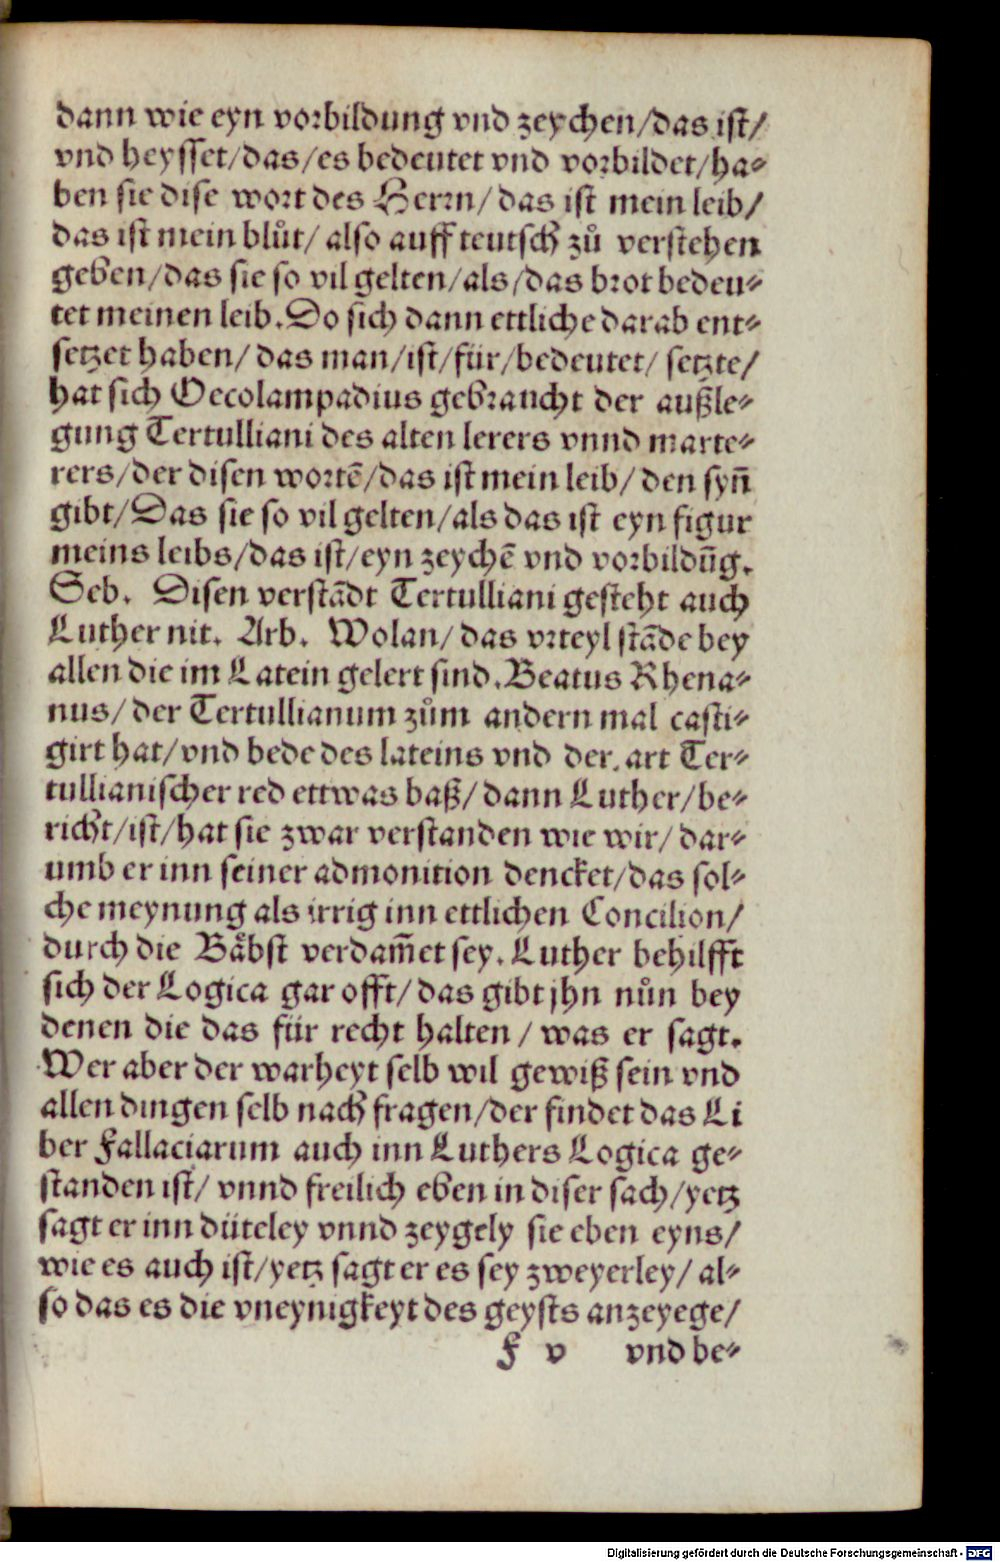 dann wie eyn vorbildung vnd zeychen/das ist/
vnd heysset/das/es bedeutet vnd vorbildet/ha⸗
ben sie dise wort des Herrn/das ist mein leib/
das ist mein blůt/ also auff teutsch zů verstehen
geben/das sie so vil gelten/als/das brot bedeu⸗
tet meinen leib. Do sich dann ettliche darab ent⸗
setzet haben/ das man/ist/für/bedeutet/ setzte/
hat sich Oecolampadius gebraucht der außle⸗
gung Tertulliani des alten lerers vnnd marte⸗
rers/der disen wortē/das ist mein leib/ den syn̄
gibt/Das sie so vil gelten/als das ist eyn figur
meins leibs/das ist/eyn zeychē vnd vorbildūg.
Seb. Disen verstādt Tertulliani gesteht auch
Luther nit. Arb. Wolan/das vrteyl stāde bey
allen die im Latein gelert sind. Beatus Rhena⸗
nus/ der Tertullianum zům andern mal casti⸗
girt hat/vnd bede des lateins vnd der art Ter⸗
tullianischer red ettwas baß/dann Luther/be⸗
richt/ist/hat sie zwar verstanden wie wir/ dar⸗
umb er inn seiner admonition dencket/das sol⸗
che meynung als irrig inn ettlichen Concilion/
durch die Båbst verdam̄et sey. Luther behilfft
sich der Logica gar offt/das gibt jhn nůn bey
denen die das für recht halten / was er sagt.
Wer aber der warheyt selb wil gewiß sein vnd
allen dingen selb nach fragen/der findet das Li
ber Fallaciarum auch inn Luthers Logica ge⸗
standen ist/ vnnd freilich eben in diser sach/yetz
sagt er inn düteley vnnd zeygely sie eben eyns/
wie es auch ist/yetz sagt er es sey zweyerley/ al⸗
so das es die vneynigkeyt des geysts anzeyege/
F v vnd be⸗
Digitalisierung gefördert durch die Deutsche Forschungsgemeinschaft - DFG